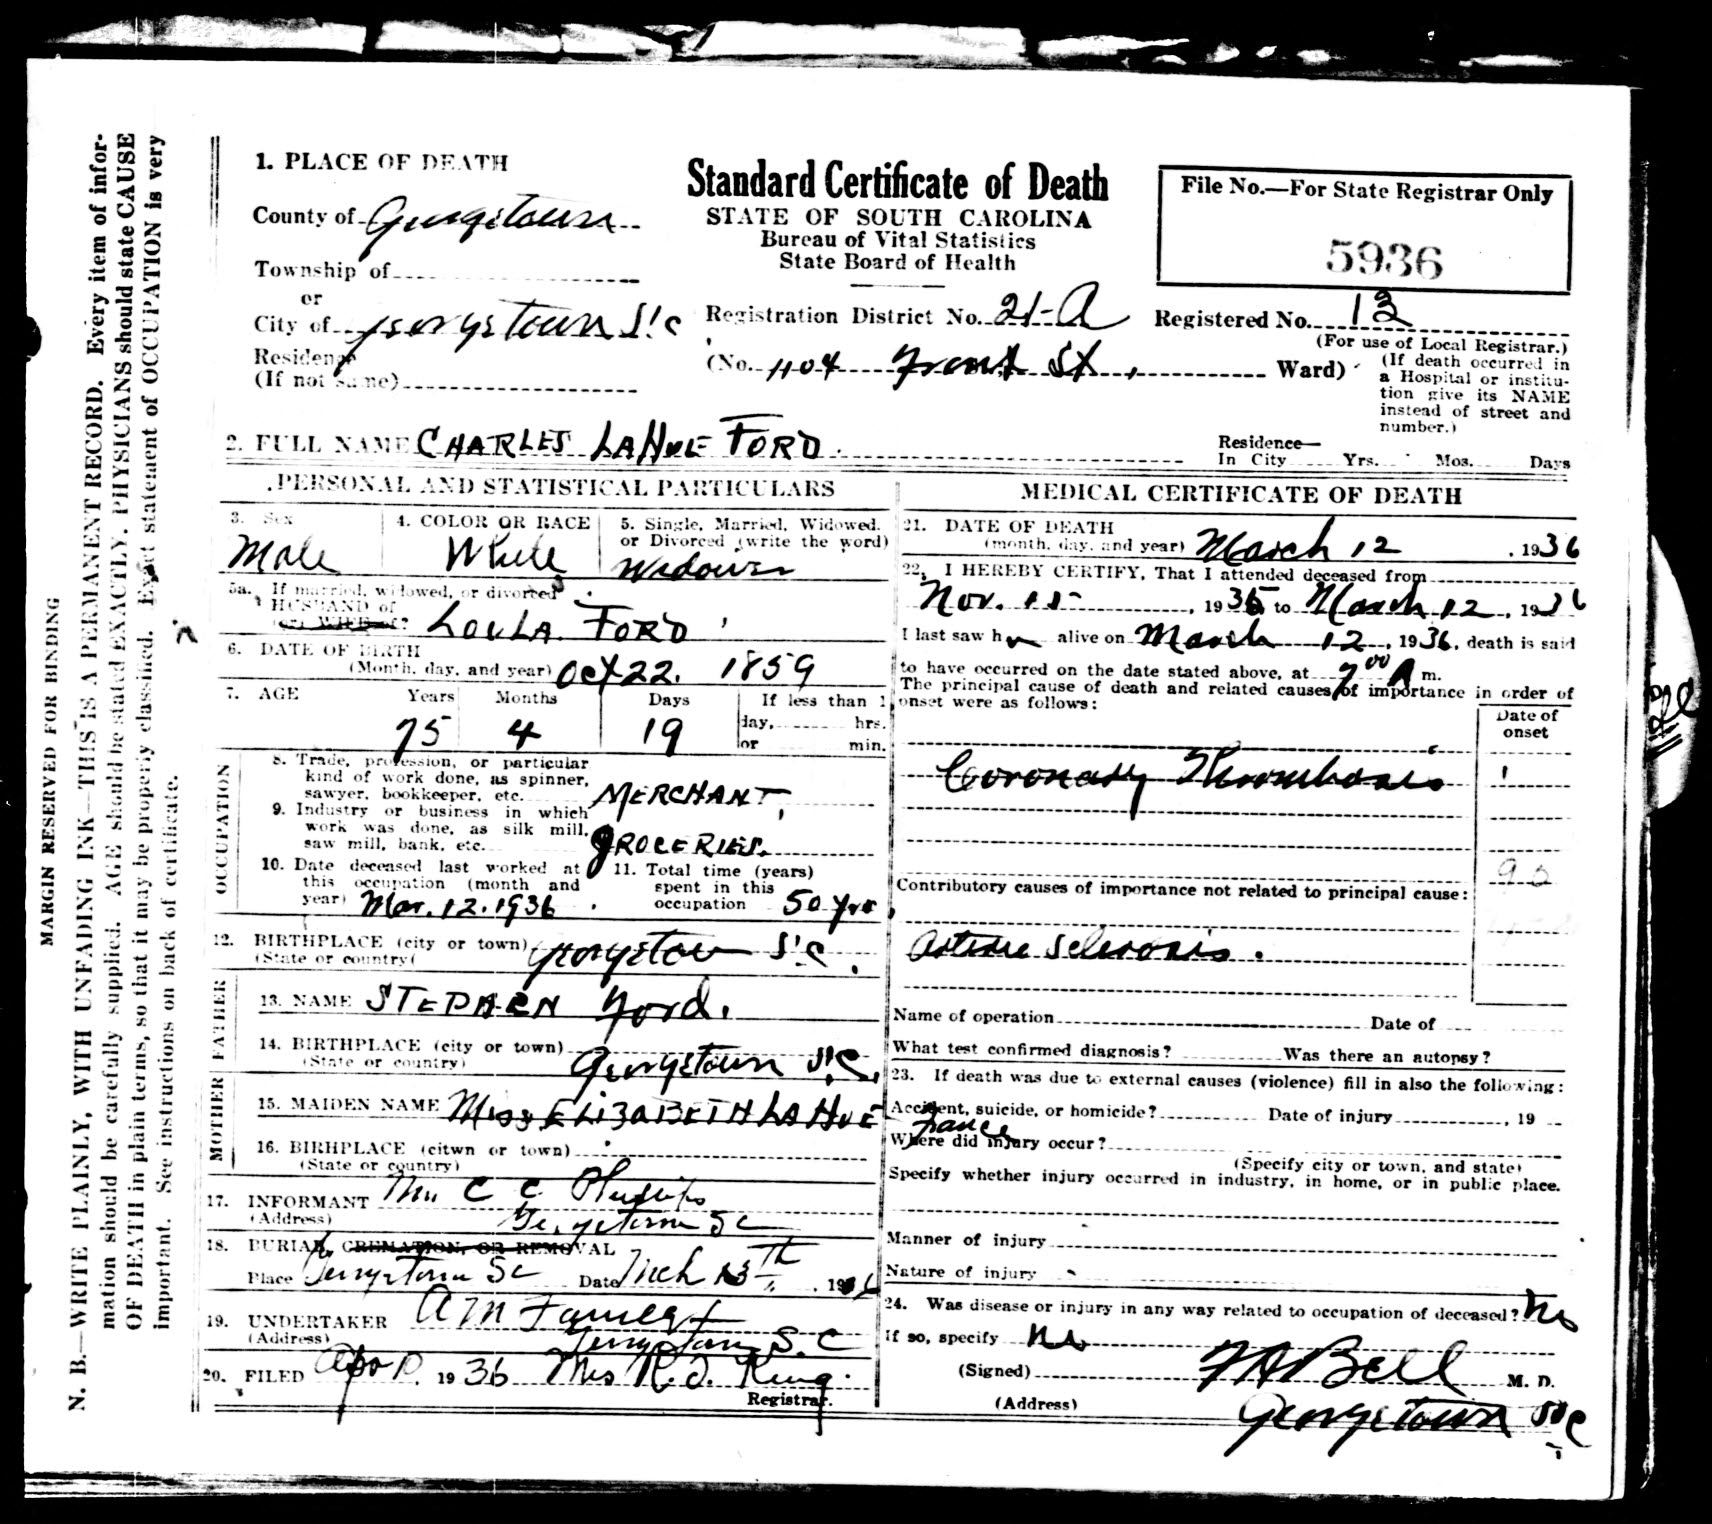 1. PLACE OF DEATH
County of Georgetown
Township of
or
City of Georgetown S.C
Residence
(If not same)
Standard Certificate of Death
STATE OF SOUTH CAROLINA
Bureau of Vital Statistics
State Board of Health
File No.—For State Registrar Only
5936
Registration District No. 21-A
Registered No. 13
(For use of Local Registrar.)
(No. 1104 Front St, Ward)
(If death occurred in
a Hospital or institu-
tion give its NAME
instead of street and
number.)
2. FULL NAME CHARLES LAHUE FORD.
Residence—
In City Yrs. Mos. Days
PERSONAL AND STATISTICAL PARTICULARS
3. Sex
Male
4. COLOR OR RACE
White
5. Single, Married, Widowed,
or Divorced (write the word)
Widower
5a. If married, widowed, or divorced
HUSBAND of
(or) WIFE of?
LOULA FORD
6. DATE OF BIRTH
(Month, day, and year) Oct 22. 1859
7. AGE Years Months Days If less than 1
75 4 19 day, hrs.
or min.
OCCUPATION
8. Trade, profession, or particular
kind of work done, as spinner,
sawyer, bookkeeper, etc. MERCHANT,
9. Industry or business in which
work was done, as silk mill,
saw mill, bank, etc. GROCERIES.
10. Date deceased last worked at
this occupation (month and
year) Mar. 12. 1936
11. Total time (years)
spent in this
occupation 50 yrs
12. BIRTHPLACE (city or town) Georgetown S.C.
(State or country(
FATHER
13. NAME STEPHEN Ford.
14. BIRTHPLACE (city or town)
(State or country) Georgetown S.C.
MOTHER
15. MAIDEN NAME Miss ELIZABETH LAHUE
16. BIRHPLACE (citwn or town) France
(State or country)
17. INFORMANT Mrs C C Phillips
(Address) Georgetown SC
18. BURIAL, CREMATION, OR REMOVAL
Place Georgetown SC Date Mch 13th, 1936
19. UNDERTAKER A M
(Address) Georgetown S.C
20. FILED Apr 10, 1936 Mrs R. J. King.
Registrar.
MEDICAL CERTIFICATE OF DEATH
21. DATE OF DEATH
(month, day, and year) March 12, 1936
22. I HEREBY CERTIFY, That I attended deceased from
Nov. 15, 1935, to March 12, 1936
I last saw h alive on March 12, 1936, death is said
to have occurred on the date stated above, at 7 00 A m.
The principal cause of death and related causes of importance in order of
onset were as follows:
Date of
onset
Coronary Thrombosis
90
Contributory causes of importance not related to principal cause:
Arterio Sclerosis.
Name of operation Date of
What test confirmed diagnosis? Was there an autopsy?
23. If death was due to external causes (violence) fill in also the following:
Accident, suicide, or homicide? Date of injury, 19
Where did injury occur?
(Specify city or town, and state)
Specify whether injury occurred in industry, in home, or in public place.
Manner of injury
Nature of injury
24. Was disease or injury in any way related to occupation of deceased? No
If so, specify No
(Signed) F A Bell M. D.
(Address) Georgetown S.C
MARGIN RESERVED FOR BINDING
N. B.—WRITE PLAINLY, WITH UNFADING INK—THIS IS A PERMANENT RECORD. Every item of infor-
mation should be carefully supplied. AGE should be stated EXACTLY. PHYSICIANS should state CAUSE
OF DEATH in plain terms, so that it may be properly classified. Exact statement of OCCUPATION is very
important. See instructions on back of certificate.